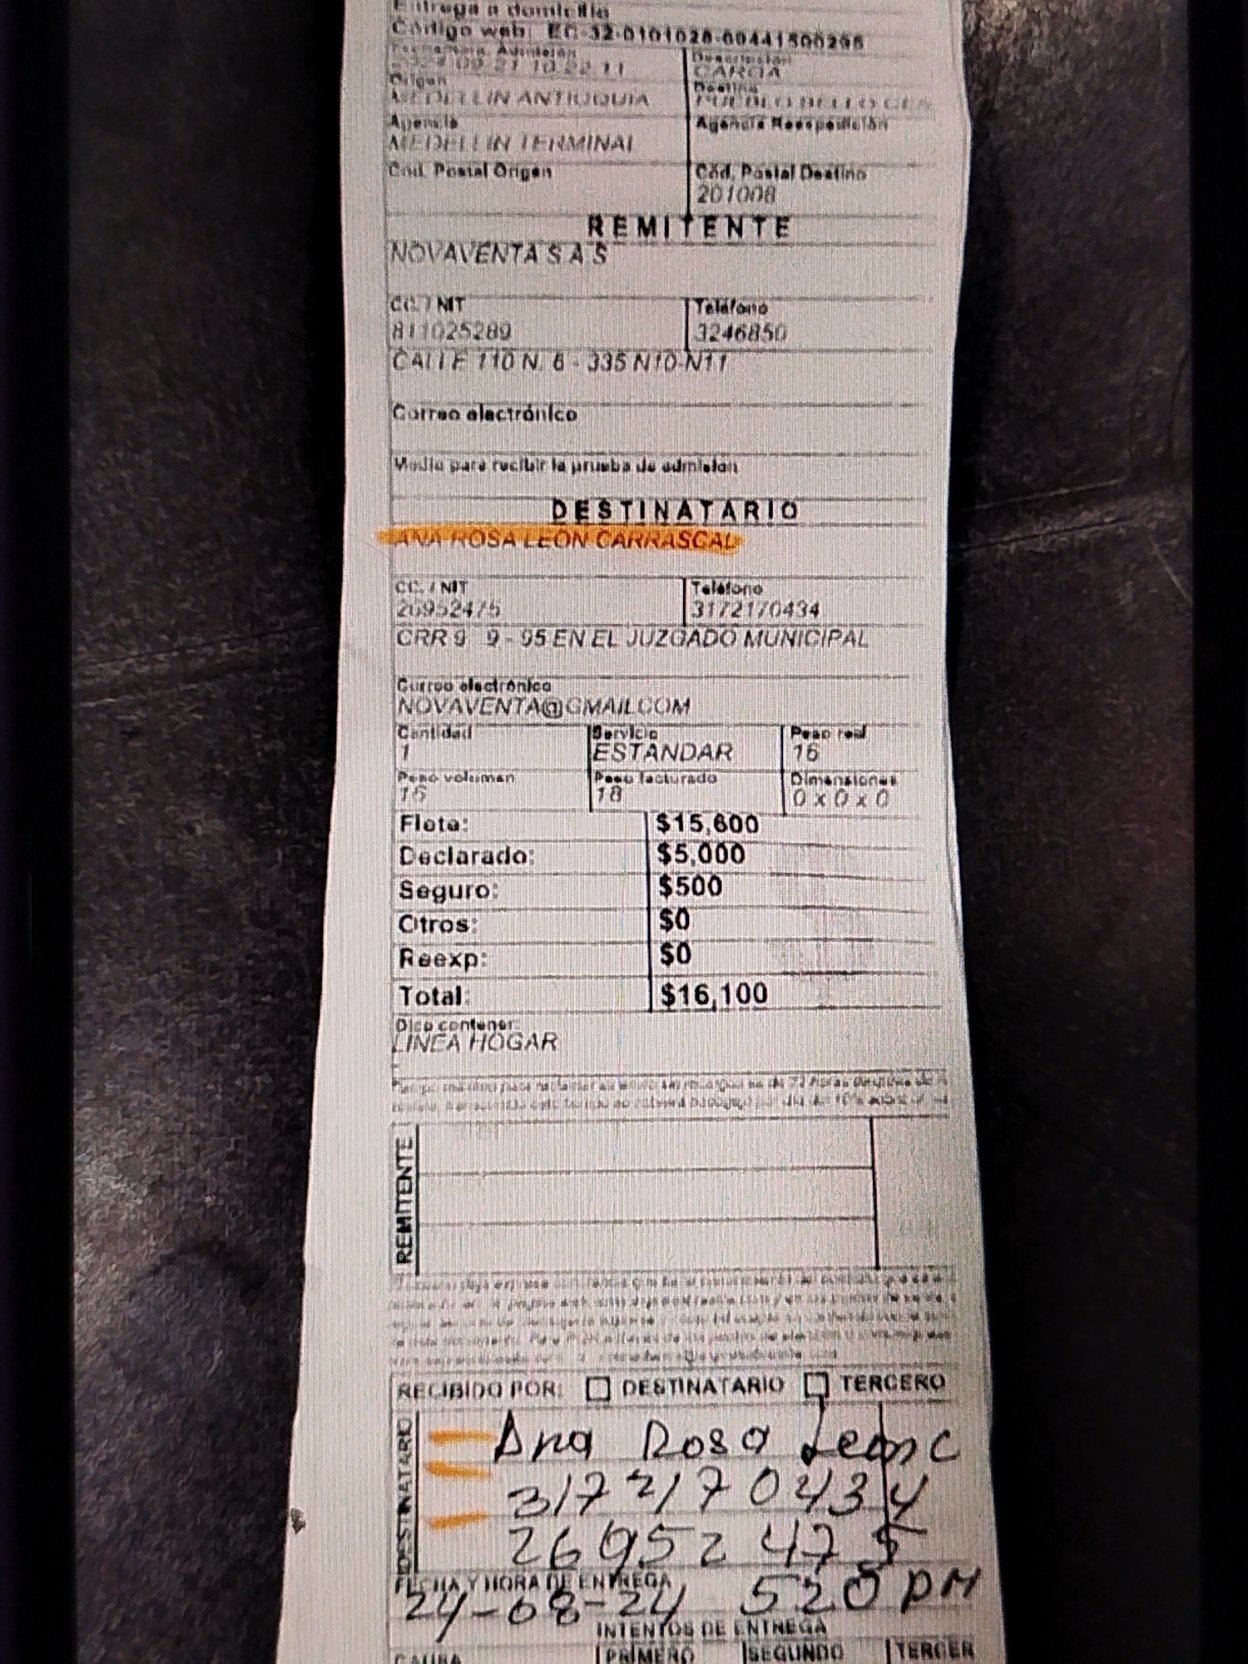 Entrega a domicilio
Código web: EC-32-0101028-00441500295
Fecha/Hora Admisión Descripción
10 22 11 CARGA
Origen Destino
MEDELLIN ANTIOQUIA PUEBLO BELLO CES
Agencia Agencia Reexpedición
MEDELLIN TERMINAL
Cód. Postal Origen Cód. Postal Destino
201008
REMITENTE
NOVAVENTA S A S
CC. / NIT Teléfono
811025289 3246850
CALLE 110 N. 6 - 335 N10-N11
Correo electrónico
Medio para recibir la prueba de admisión
DESTINATARIO
ANA ROSA LEON CARRASCAL
CC. / NIT Teléfono
26952475 3172170434
CRR 9 9 - 95 EN EL JUZGADO MUNICIPAL
Correo electrónico
NOVAVENTA@GMAIL.COM
Cantidad Servicio Peso real
1 ESTANDAR 16
Peso volumen Peso facturado Dimensiones
16 18 0 x 0 x 0
Flete: $15,600
Declarado: $5,000
Seguro: $500
Otros: $0
Reexp: $0
Total: $16,100
Dice contener:
LINEA HOGAR
REMITENTE
RECIBIDO POR: DESTINATARIO TERCERO
DESTINATARIO
Ana Rosa Leon C
3172170434
26952475
FECHA Y HORA DE ENTREGA
24-08-24 520 PM
INTENTOS DE ENTREGA
CAUSA PRIMERO SEGUNDO TERCER